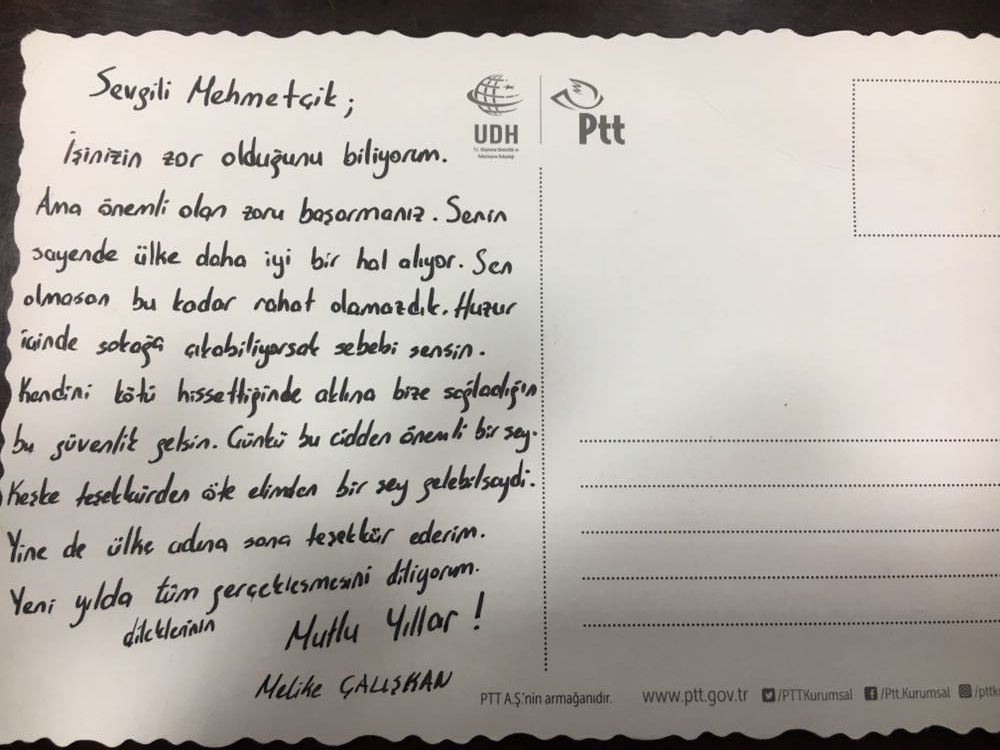 Sevgili Mehmetçik;
İşinizin zor olduğunu biliyorum.
Ama önemli olan zoru başarmanız. Senin
sayende ülke daha iyi bir hal alıyor. Sen
olmasan bu kadar rahat olamazdık. Huzur
içinde sokağa çıkabiliyorsak sebebi sensin.
Kendini kötü hissettiğinde aklına bize sağladığın
bu güvenlik gelsin. Çünkü bu cidden önemli bir şey.
Keşke teşekkürden öte elimden bir şey gelebilseydi.
Yine de ülke adına sana teşekkür ederim.
Yeni yılda tüm gerçekleşmesini diliyorum.
dileklerinin
Mutlu Yıllar !
Melike ÇALIŞKAN
UDH
Ptt
PTT A.Ş.'nin armağanıdır.
www.ptt.gov.tr
/PTTKurumsal
/Ptt.Kurumsal